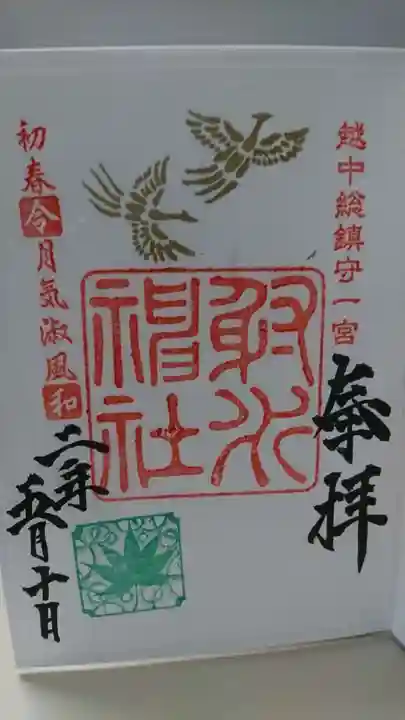 越中総鎮守一宮
奉拝
射水
神社
初春令月気淑風和
二年
五月十日